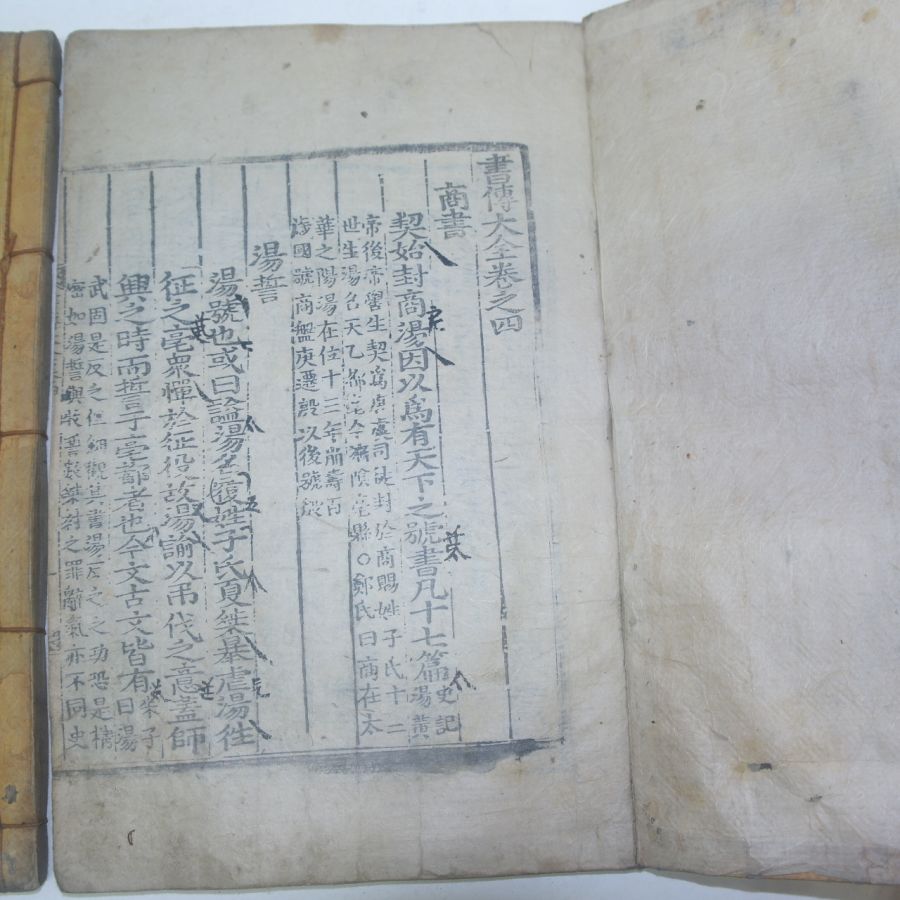 書傳大全卷之四
商書
契始封商湯因以爲有天下之號書凡十七篇史記湯黃
帝後帝嚳生契爲唐虞司徒封於商賜姓子氏十二
世生湯名天乙都亳今濟陰亳縣○鄭氏曰商在太
華之陽湯在位十三年崩壽百
歲國號商盤庚遷殷以後號殷
湯誓
湯號也或曰謚湯名履姓子氏夏桀暴虐湯往
征之亳衆憚於征役故湯諭以弔伐之意蓋師
興之時而誓于亳都者也今文古文皆有朱子曰湯
武固是反之但細觀其書湯反之之功恐是精
密如湯誓與牧誓數桀紂之罪辭氣亦不同史